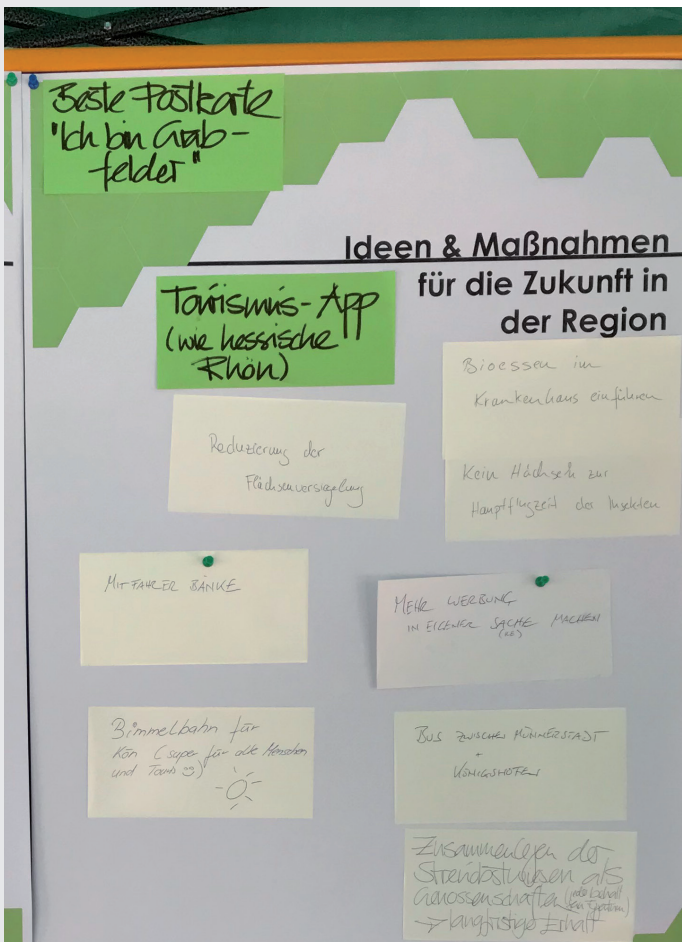 Beste Postkarte
"Ich bin Grab-
felder"
Ideen & Maßnahmen
für die Zukunft in
der Region
Tourismus-App
(wie hessische
Rhön)
Bioessen im
Krankenhaus einführen
Reduzierung der
Flächenversiegelung
Kein Häckseln zur
Hauptflugzeit der Insekten
MITFAHRER BÄNKE
MEHR WERBUNG
IN EIGENER SACHE MACHEN
Bimmelbahn für
Kön (super für alle Menschen
und Touris
BUS ZWISCHEN MÜNNERSTADT
+
KÖNIGSHOFEN
Zusammenlegen der
Streuobstwiesen als
Genossenschaften
→ langfristige Erhalt